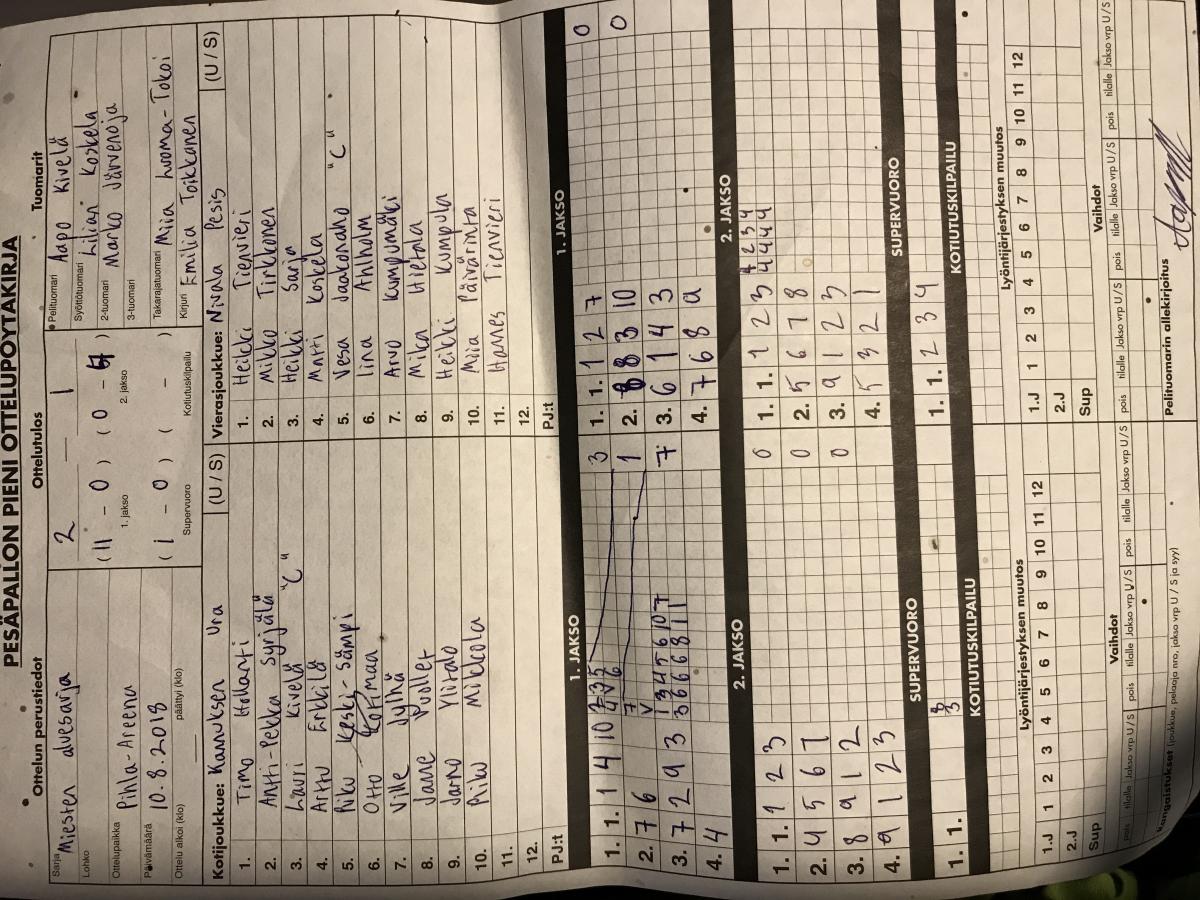 PESÄPALLON PIENI OTTELUPÖYTÄKIRJA
Ottelun perustiedot
Sarja Miesten aluesarja
Lohko
Ottelupaikka Pihla-Areena
Päivämäärä 10.8.2018
Ottelu alkoi (klo) päättyi (klo)
Ottelutulos
2 — 1
(11 - 0) (0 - 4)
1. jakso 2. jakso
(1 - 0) ( - )
Supervuoro Kotiutuskilpailu
Tuomarit
Pelituomari Aapo Kivelä
Syöttötuomari Lilian Koskela
2-tuomari Marko Järvenoja
3-tuomari
Takarajatuomari Miia Luoma-Tokoi
Kirjuri Emilia Toikkanen
Kotijoukkue: Kannuksen Ura (U / S)
1. Timo Hollanti
2. Antti-Pekka Syrjälä
3. Lauri Kivelä "C"
4. Arttu Erkkilä
5. Riku Keski-Sämpi
6. Otto Kotimaa
7. Ville Jylhä
8. Janne Puoller
9. Jarno Ylitalo
10. Riku Mikkola
11.
12.
PJ:t
Vierasjoukkue: Nivala Pesis (U / S)
1. Heikki Tienvieri
2. Mikko Tirkkonen
3. Heikki Sarja
4. Martti Koskela
5. Vesa Jaakonaho "C"
6. Iina Ahlholm
7. Arvo Kumpumäki
8. Mika Hietala
9. Heikki Kumpula
10. Miia Päivärinta
11. Hannes Tienvieri
12.
PJ:t
1. JAKSO
1. 1. 1 4 10 3
2. 7 6 1
3. 7 2 9 3 7
4. 4
1. JAKSO
1. 1. 1 2 7 0
2. 8 3 10 0
3. 6 1 4 3
4. 7 6 8 9
2. JAKSO
1. 1. 1 2 3 0
2. 4 5 6 7 0
3. 8 9 1 2 0
4. 9 1 2 3
2. JAKSO
1. 1. 1 2 3 4 4 4 4
2. 5 6 7 8
3. 9 1 2 3
4. 5 3 2 1
SUPERVUORO
1. 1.
SUPERVUORO
1. 1. 2 3 4
KOTIUTUSKILPAILU
KOTIUTUSKILPAILU
Lyöntijärjestyksen muutos
1.J 1 2 3 4 5 6 7 8 9 10 11 12
2.J
Sup
Lyöntijärjestyksen muutos
1.J 1 2 3 4 5 6 7 8 9 10 11 12
2.J
Sup
Vaihdot
pois tilalle Jakso vrp U/S pois tilalle Jakso vrp U/S pois tilalle Jakso vrp U/S
Vaihdot
pois tilalle Jakso vrp U/S pois tilalle Jakso vrp U/S pois tilalle Jakso vrp U/S
Rangaistukset (joukkue, pelaaja nro, jakso vrp U / S ja syy)
Pelituomarin allekirjoitus